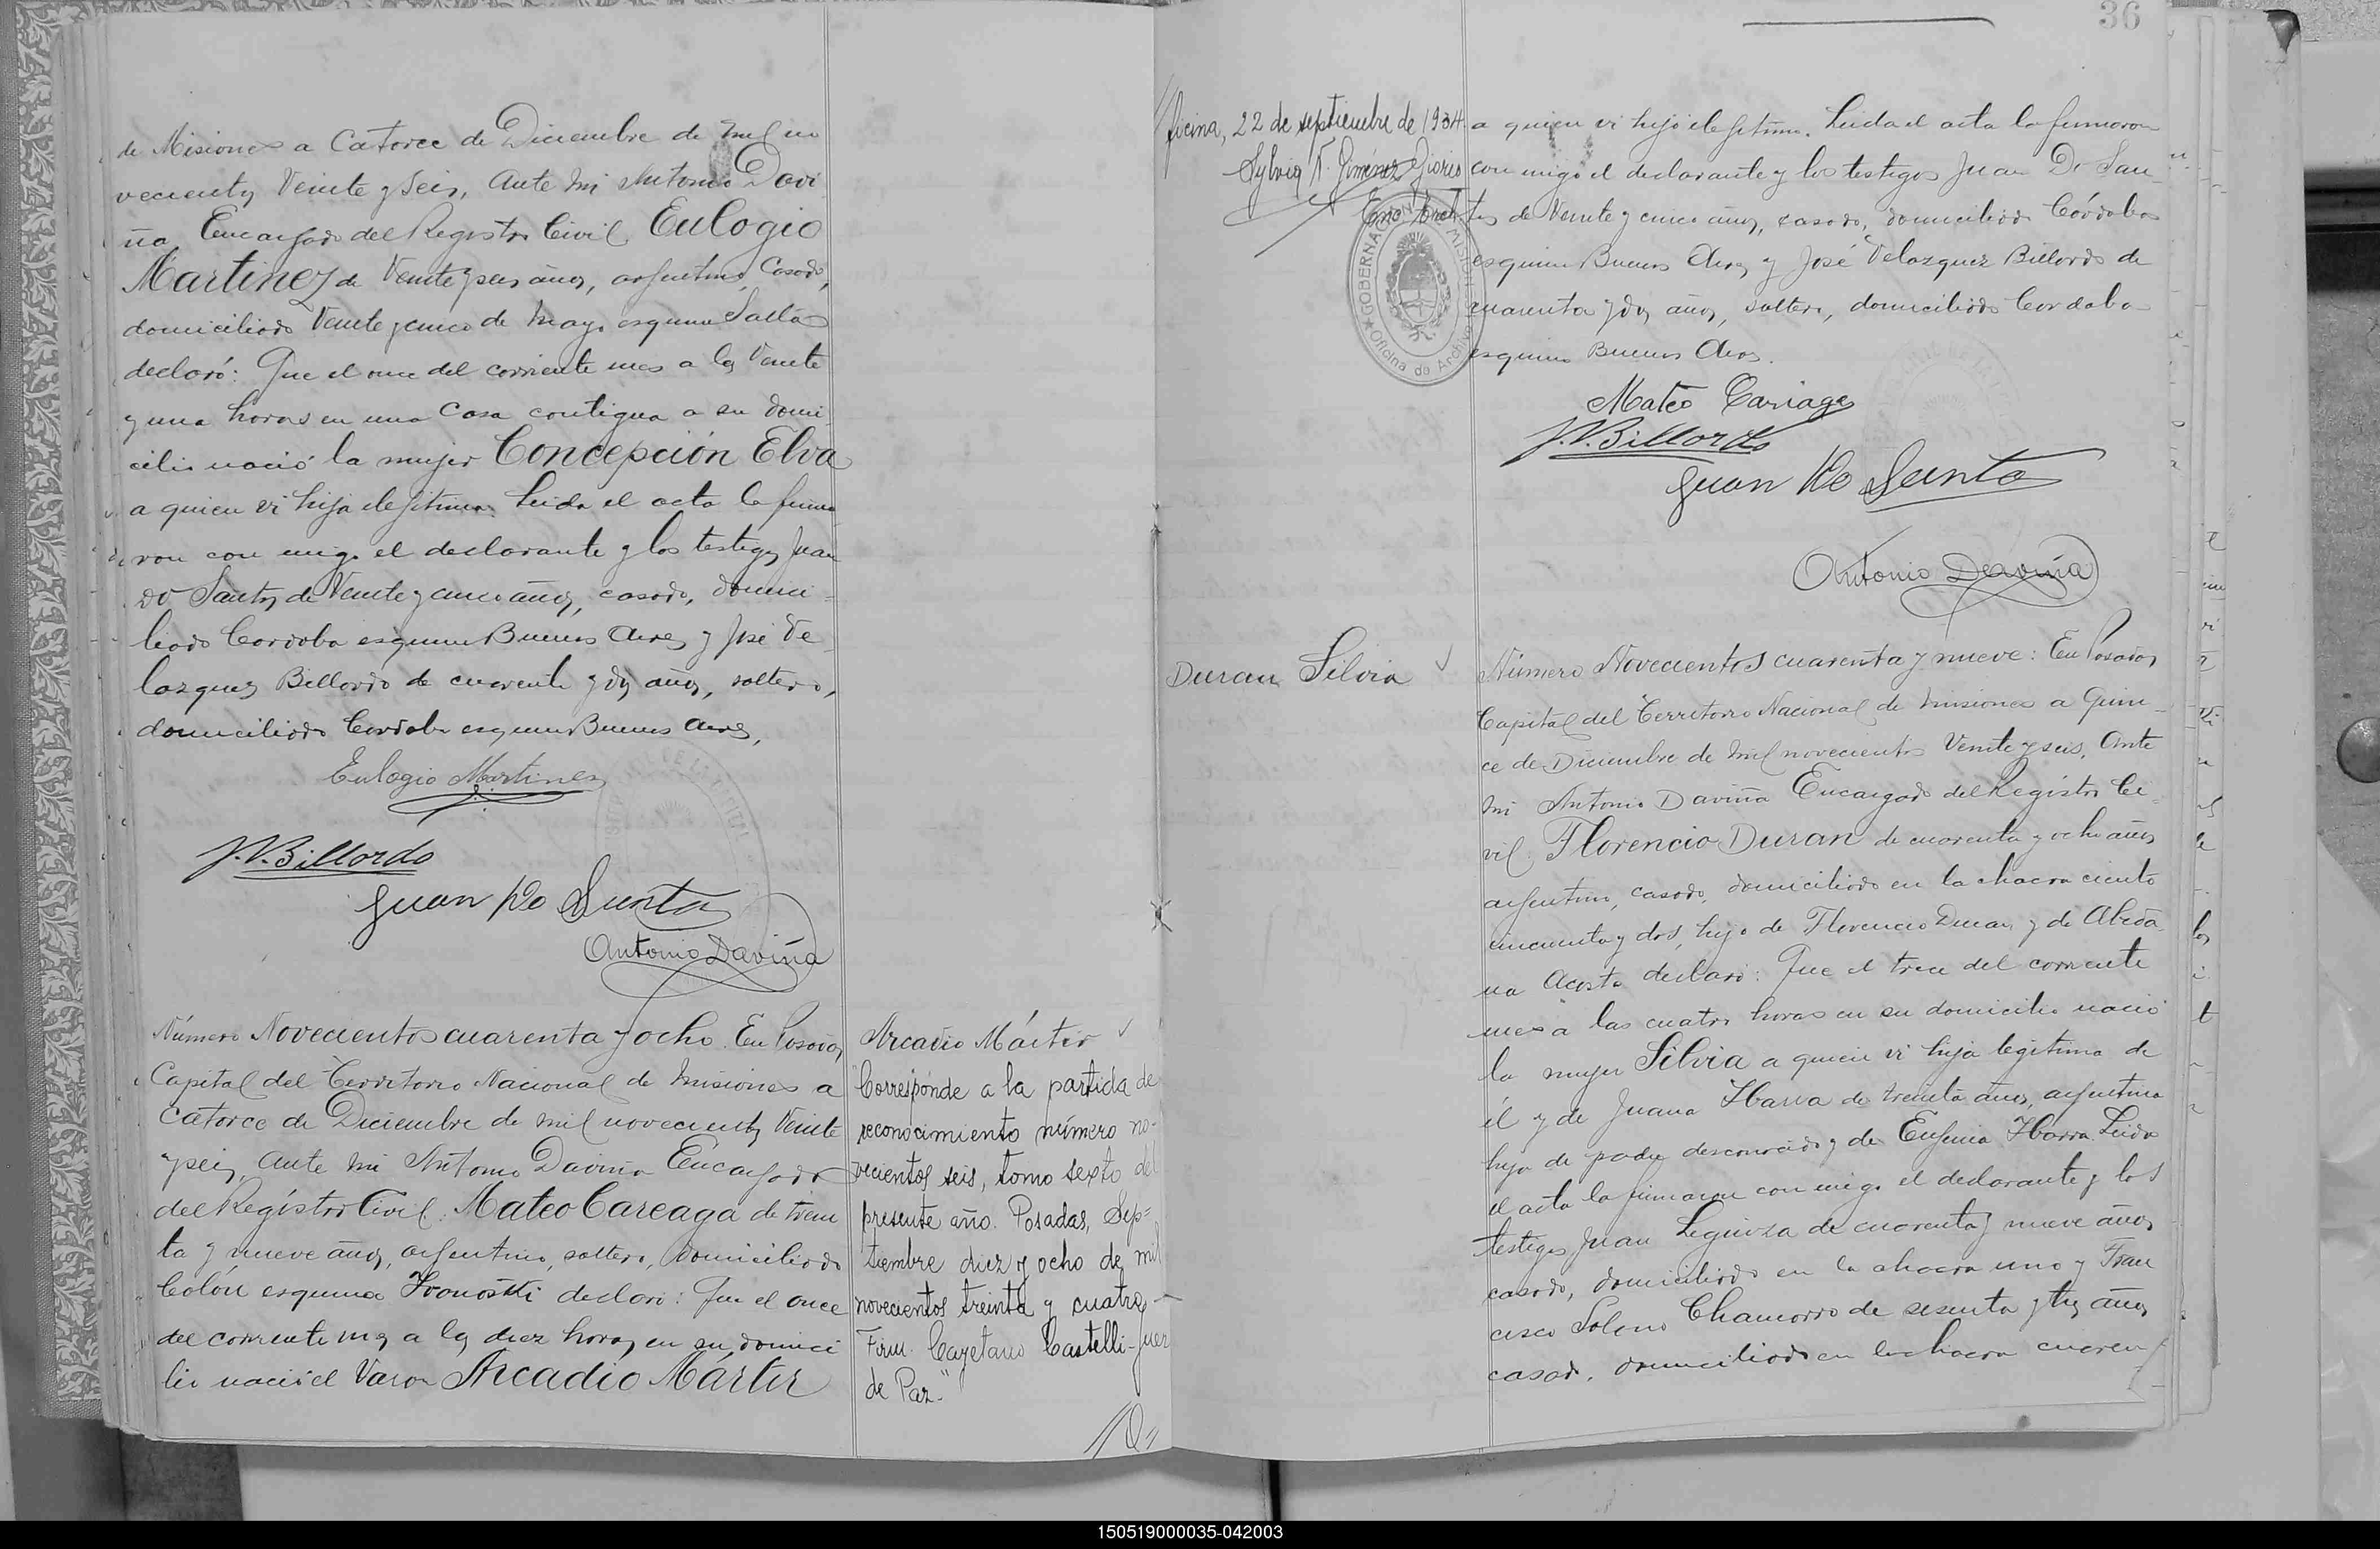 de Misiones a Catorce de Diciembre de mil no
vecientos Veinte y seis, Ante mi Antonio Davi
ña, Encargado del Registro Civil Eulogio
Martinez de Veinte y seis años, argentino, casado,
domiciliado Veinte y cinco de Mayo esquina Salta
declaró: Que el once del corriente mes a las Veinte
y una horas en una casa contigua a su domi
cilio nació la mujer Concepción Elva
a quien vi hija ilegitima. Leida el acta la firma
ron con migo el declarante y los testigos Juan
Do Santos de Veinte y cinco años, casado, domici
liado Cordoba esquina Buenos Aires y José Ve
lazquez Billordo de cuarenta y dos años, soltero,
domiciliado Cordoba esquina Buenos Aires,
Eulogio Martinez
J.V.Billordo
Juan Do Santo
Antonio Daviña
Número Novecientos cuarenta y ocho. En Posadas
Capital del Territorio Nacional de Misiones a
Catorce de Diciembre de mil novecientos Veinte
y seis, Ante mi Antonio Daviña Encargado
del Registro Civil. Mateo Careaga de trein
ta y nueve años, argentino, soltero, domiciliado
Colón esquina declaró: Que el once
del corriente mes a las diez horas en su domici
lio nació el Varon Arcadio Mártir
Arcadio Mártir
"Corresponde a la partida de
reconocimiento número no-
vecientos seis, tomo sexto del
presente año. Posadas, Sep=
tiembre diez y ocho de mil
novecientos treinta y cuatro.-
Firm. Cayetano Castelli-Juez
de Paz."
36
ficina, 22 de septiembre de 1934
Sylvia N. Gimenez
GOBERNACION DE MISIONES
Oficina de Archivo
a quien vi hijo ilegitimo. Leida el acta la firmaron
con migo el declarante y los testigos Juan Do San
tos de Veinte y cinco años, casado, domiciliado Córdoba
esquina Buenos Aires y José Velazquez Billordo de
cuarenta y dos años, soltero, domiciliado Cordoba
esquina Buenos Aires.
Mateo Cariaga
J.V.Billordo
Juan Do Santo
Antonio Daviña
Duran Silvia
Número Novecientos cuarenta y nueve: En Posadas
Capital del Territorio Nacional de Misiones a Quin
ce de Diciembre de mil novecientos Veinte y seis, Ante
mi Antonio Daviña Encargado del Registro Ci
vil, Florencio Duran de cuarenta y ocho años
argentino, casado, domiciliado en la chacra ciento
cincuenta y dos, hijo de Florencio Duran y de
Acosta declaró: Que el trece del corriente
mes a las cuatro horas en su domicilio nació
la mujer Silvia a quien vi hija legitima de
él y de Juana Ibarra de treinta años, argentina
hija de padre desconocido y de Eufenia Ibarra. Leida
el acta la firmaron con migo el declarante y los
testigos Juan Leguiza de cuarenta y nueve años
casado, domiciliado en la chacra uno y Fran
cisco Solano Chamorro de sesenta y tres años
casado, domiciliado en la chacra cuaren
150519000035-042003